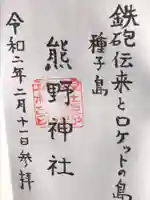 鉄砲伝来とロケットの島
種子島
熊野神社
令和二年二月十一日参拝